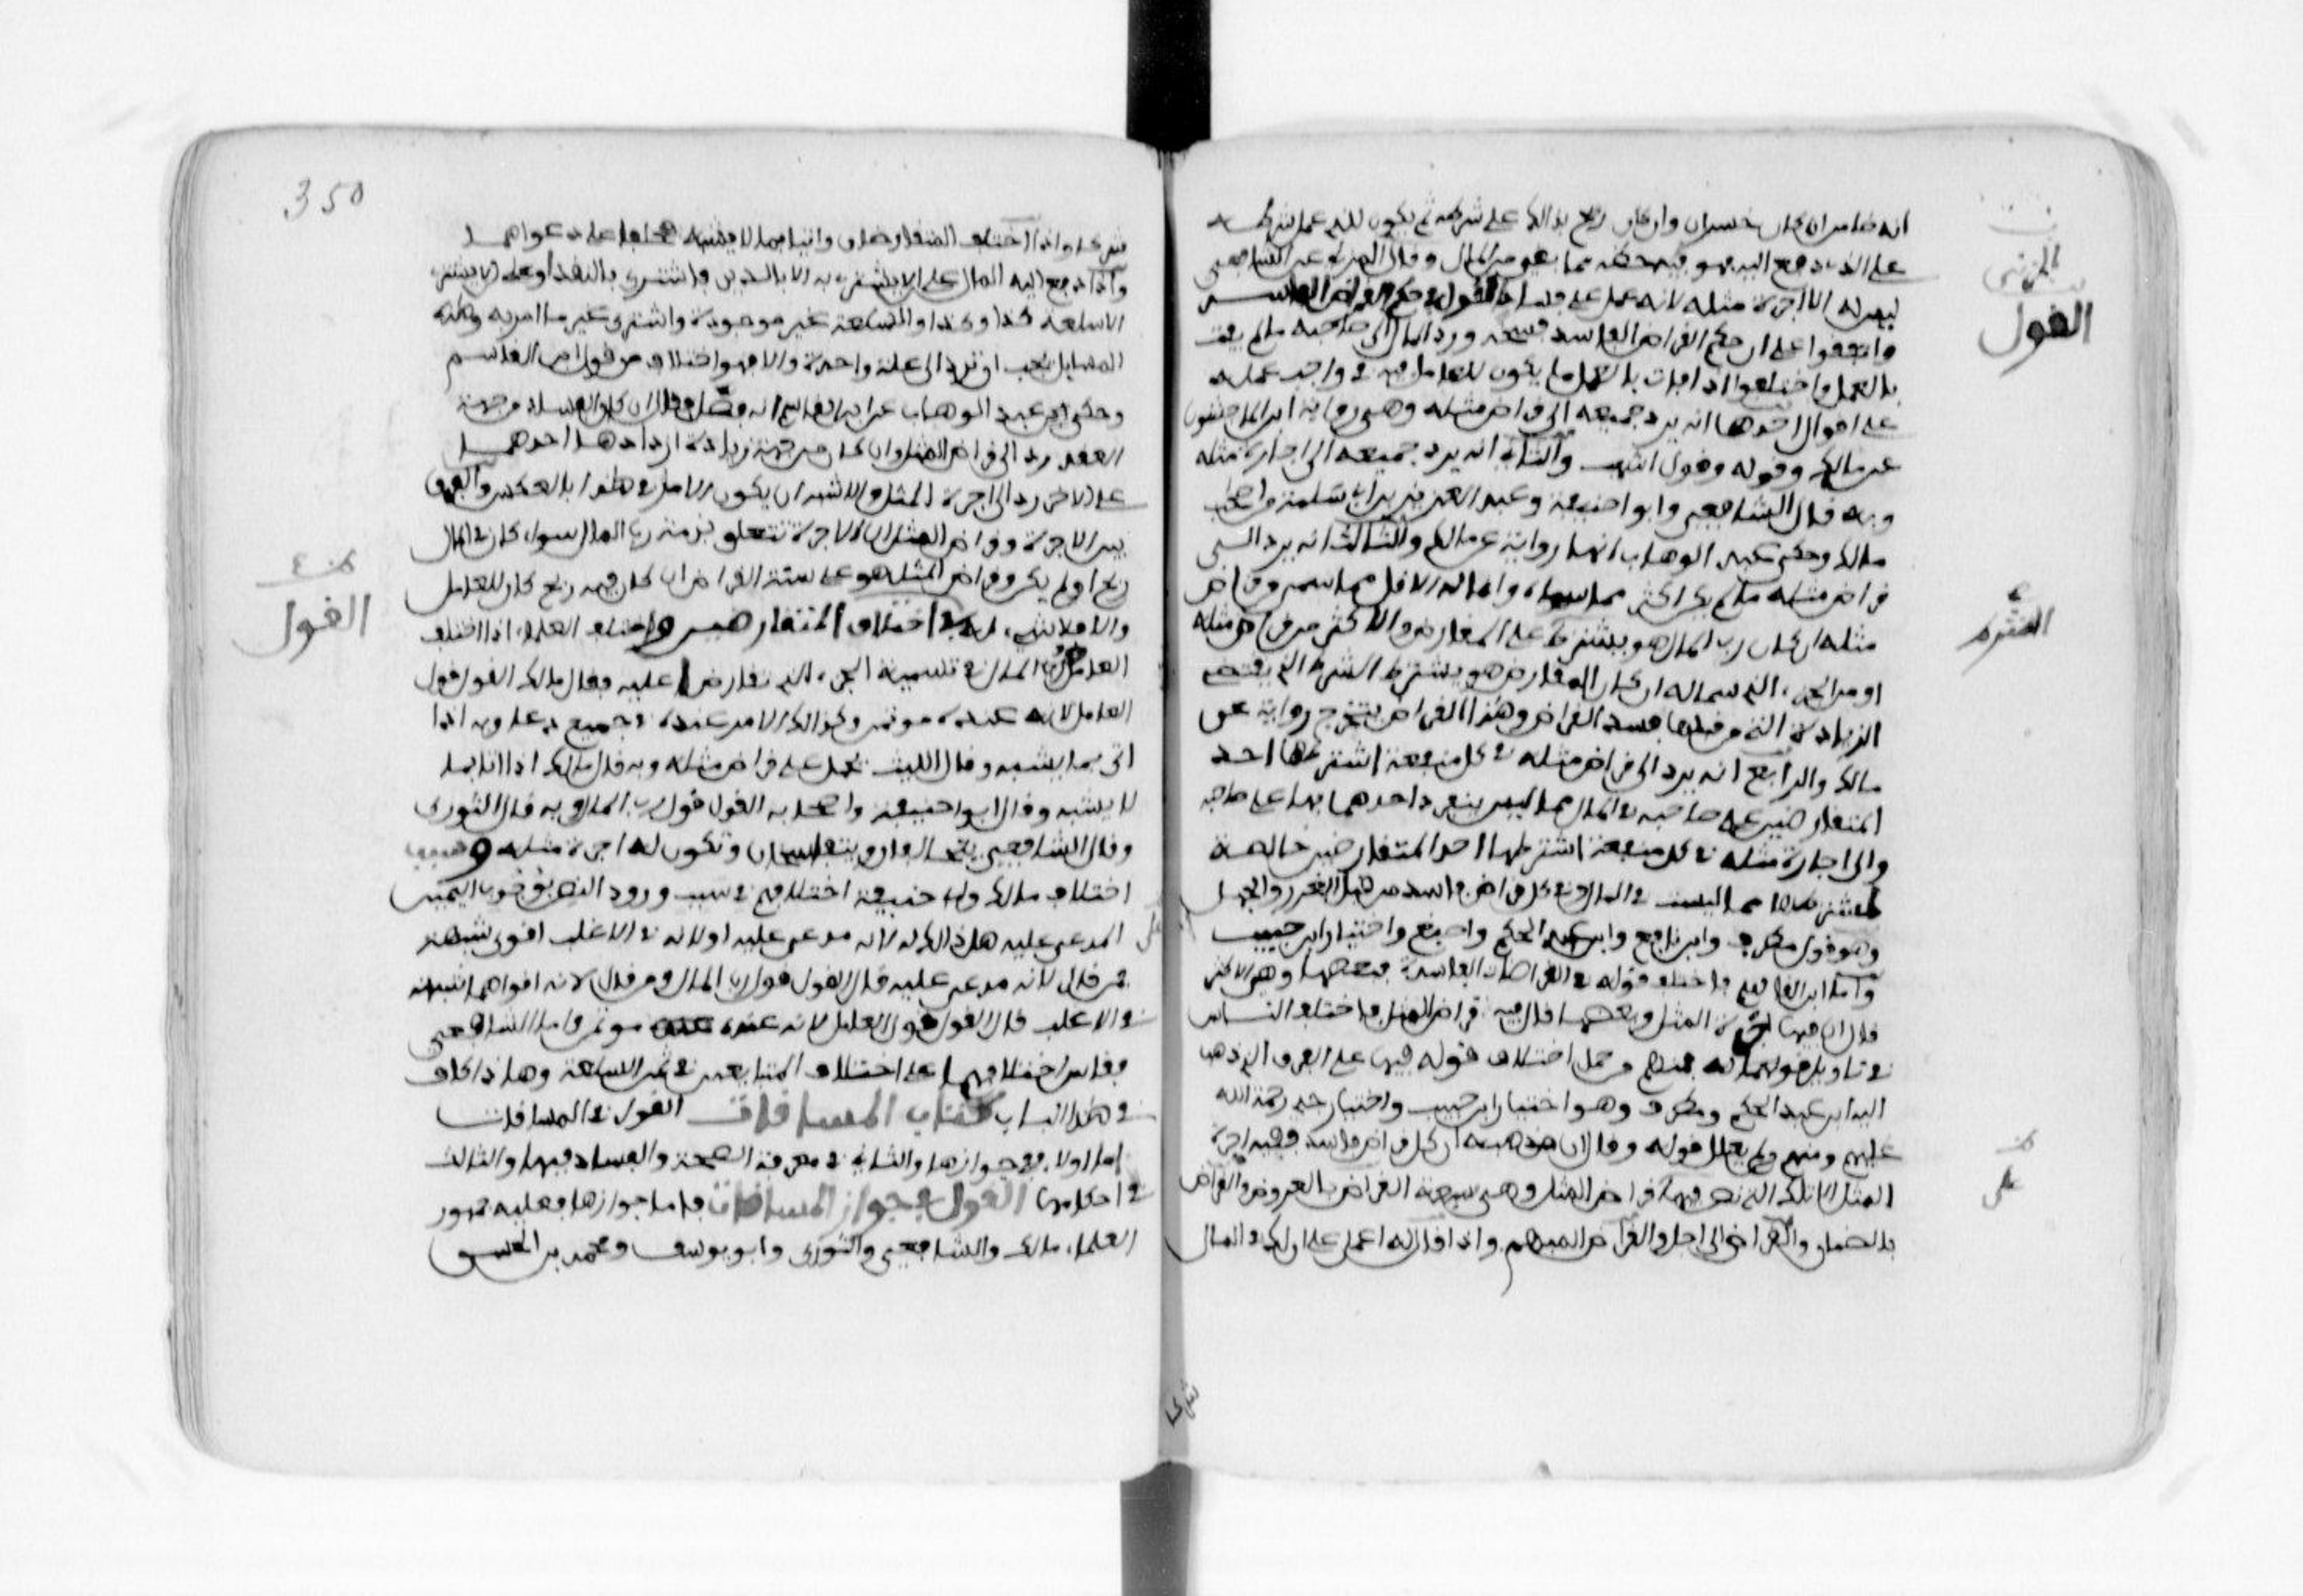 انه ضامن ان كان خسران وان كان ربح فذالك على شرطه ثم يكون للذي عمل شرطه
على الذي دفع اليه فيوفيه حظه مما بقي من المال وقال المزني عن الشافعي
ليس له الا اجرة مثله لانه عمل على فساد القول في حكم القراض الفاسد
واتفقوا على ان حكم القراض الفاسد فسخه ورد المال الى صاحبه ما لم يفت
بالعمل واختلفوا اذا فات بالعمل ما يكون للعامل فيه في واجب عمله
على اقوال احدها انه يرد جميعه الى قراض مثله وهي رواية ابن الماجشون
عن مالك وقوله وقول اشهب والثاني انه يرد جميعه الى اجارة مثله
وبه قال الشافعي وابو حنيفة وعبد العزيز بن ابي سلمة واصحاب
مالك وحكى عبد الوهاب انها رواية عن مالك والثالث انه يرد الى
قراض مثله ما لم يكن اكثر مما سماه وانما له الاقل مما سمى وقراض
مثله ان كان رب المال هو يشترط على المقارض والاكثر من قراض مثله
او من الجزء الذي سما له ان كان المقارض هو يشترط الشرط الذي يقتضي
الزيادة التي من قبلها فسد القراض وهذا القراض يتخرج رواية عن
مالك والرابع انه يرد الى قراض مثله في كل منفعة اشترطها احد
المتقارضين على صاحبه في المال مما ليس ينفرد احدهما بها على صاحبه
والى اجارة مثله في كل منفعة اشترطها احد المتقارضين خالصة
لمشترطها مما ليست في المال وفي كل قراض فاسد من قبل الغرر والجهل
وهو قول مطرف وابن نافع وابن عبد الحكم واصبغ واختيار ابن حبيب
واما ابن القاسم فاختلف قوله في القراضات الفاسدة فبعضها وهي الاكثر
قال ان فيها اجرة المثل وبعضها قال فيه قراض المثل فاختلف الناس
في تاويل قوله فمنهم من حمل اختلاف قوله فيها على الفرق الذي ذهب
اليه ابن عبد الحكم ومطرف وهو اختيار ابن حبيب واختيار جدي رحمة الله
عليهم ومنهم من لم يعلل قوله وقال ان مذهبه ان كل قراض فاسد ففيه اجرة
المثل الا تلك التي نص فيها قراض المثل وهي سبعة القراض بالعروض والقراض
بالضمان والقراض الى اجل والقراض المبهم واذا قال له اعمل على ان لك في المال
المزني
القول
الشرط
على
شركا
350
شركا واذا اختلف المتقارضان واتيا بما لا يشبه فحلفا على دعواهما
واذا دفع اليه المال على الا يشتري به الا بالدين فاشترى بالنقد او على الا يشتري
الا سلعة كذا وكذا والسلعة غير موجودة فاشترى غير ما امر به وهذه
المسايل يجب ان ترد الى علة واحدة والا فهو اختلاف من قول ابن القاسم
وحكى عبد الوهاب عن ابن القاسم انه فصل فقال ان كان الفساد من جهة
العقد رد الى قراض المثل وان كان من جهة زيادة ازدادها احدهما
على الاخر رد الى اجرة المثل والاشبه ان يكون الامر في هذا بالعكس والفرق
بين الاجرة وقراض المثل ان الاجرة تتعلق بذمة رب المال سواء كان في المال
ربح او لم يكن وقراض المثل هو على سنة القراض ان كان فيه ربح كان للعامل
والا فلا شيء له في اختلاف المتقارضين واختلف العلماء اذا اختلف
العامل ورب المال في تسمية الجزء الذي تقارضا عليه فقال مالك القول قول
العامل لانه عنده موتمن وكذالك الامر عنده في جميع دعاويه اذا
اتى بما يشبه وقال الليث يحمل على قراض مثله وبه قال مالك اذا اتيا بما
لا يشبه وقال ابو حنيفة واصحابه القول قول رب المال وبه قال الثوري
وقال الشافعي يتحالفان ويتفاسخان وتكون له اجرة مثله وسبب
اختلاف مالك وابي حنيفة اختلافهم في سبب ورود النص بوجوب اليمين
على المدعى عليه هل ذالك لانه مدعى عليه او لانه في الاغلب اقوى شبهة
فمن قال لانه مدعى عليه قال القول قول رب المال ومن قال لانه اقواهما شبهة
في الاغلب قال القول قول العامل لانه عنده موتمن واما الشافعي
فقاس اختلافهما على اختلاف المتبايعين في ثمن السلعة وهاذا كاف
في هذا الباب كتاب المساقات القول في المساقات
اما اولا ففي جوازها والثاني في معرفة الصحة والفساد فيها والثالث
في احكامها القول في جواز المساقات فاما جوازها فعليه جمهور
العلماء مالك والشافعي والثوري وابو يوسف ومحمد بن الحسن
القول